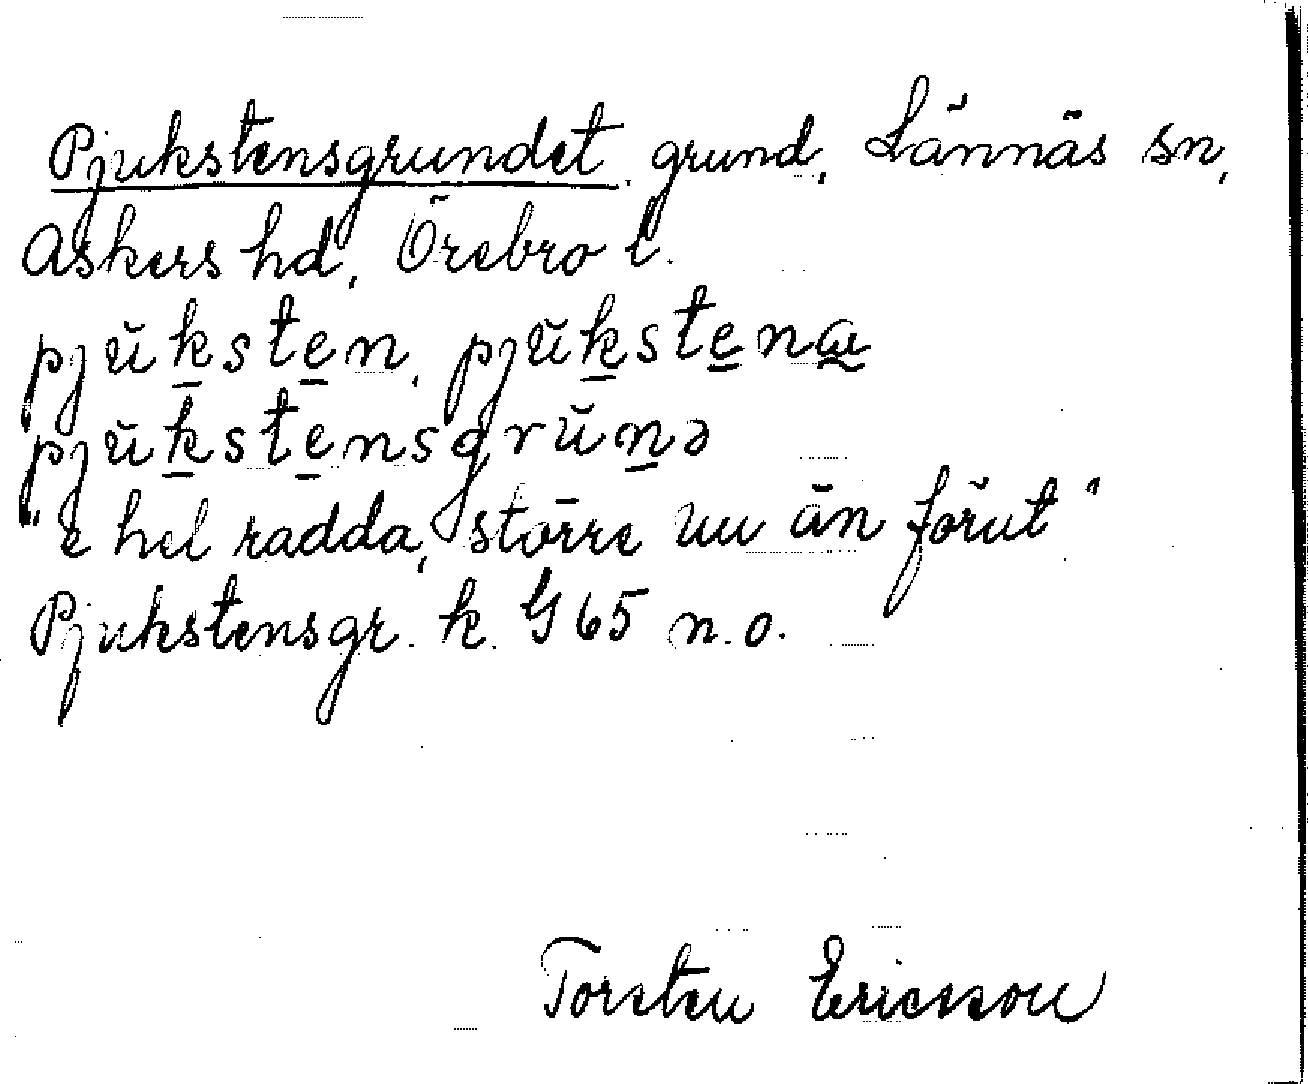 Pjukstensgrundet, grund, Lännäs sn,
Askers hd, Örebro l.
pjŭksten, pjŭkstena
pjŭkstensgrŭnə
"e hel radda, större nu än förut"
Pjukstensgr. k. G 65 n.o.
Torsten Ericsson